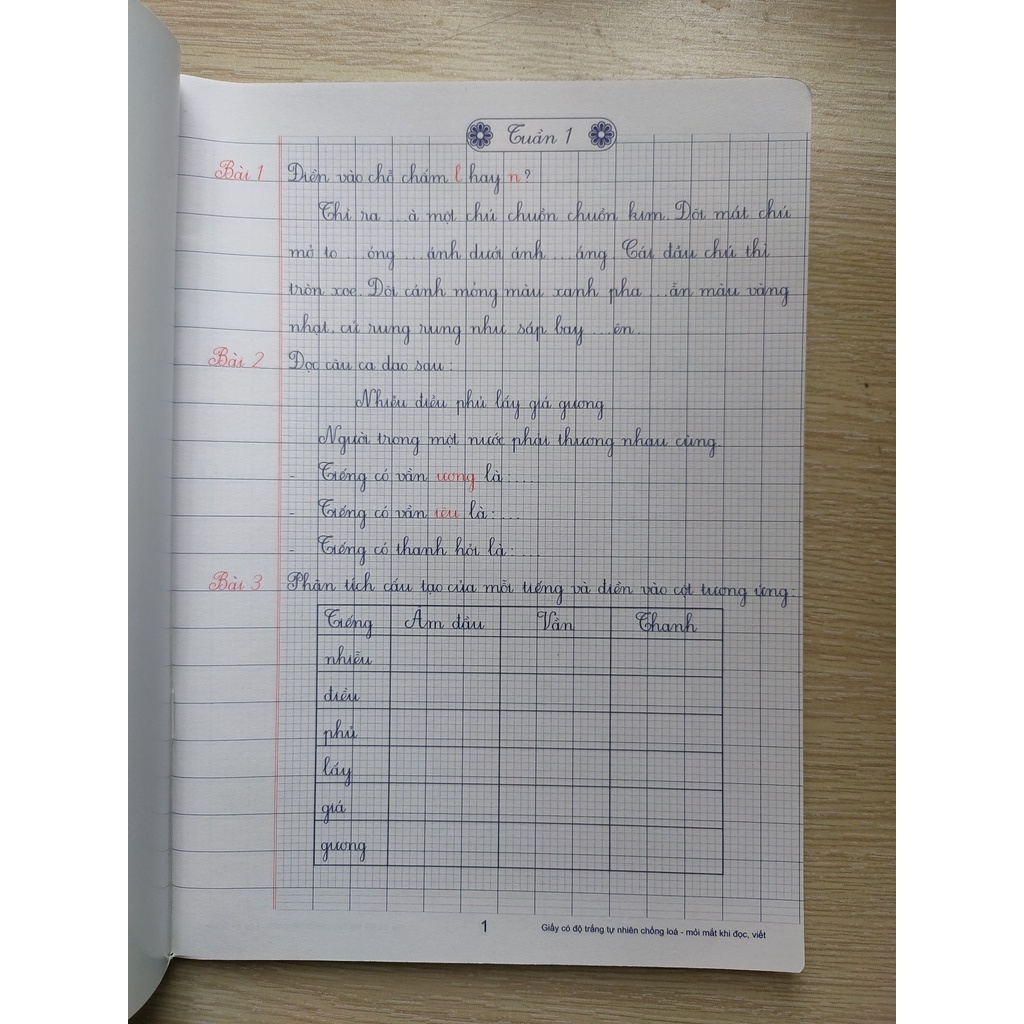 Tuần 1
Bài 1 Điền vào chỗ chấm l hay n?
Thì ra ...à một chú chuồn chuồn kim. Đôi mắt chú
mở to ... óng ... ánh dưới ánh ... áng. Cái đầu chú thì
tròn xoe. Đôi cánh mỏng màu xanh pha ...ẫn màu vàng
nhạt, cứ rung rung như sắp bay ...ên.
Bài 2 Đọc câu ca dao sau:
Nhiễu điều phủ lấy giá gương
Người trong một nước phải thương nhau cùng.
- Tiếng có vần ương là: ...
- Tiếng có vần iêu là: ...
- Tiếng có thanh hỏi là: ...
Bài 3 Phân tích cấu tạo của mỗi tiếng và điền vào cột tương ứng:
Tiếng Âm đầu Vần Thanh
nhiễu
điều
phủ
lấy
giá
gương
1 Giấy có độ trắng tự nhiên chống loá - mỏi mắt khi đọc, viết